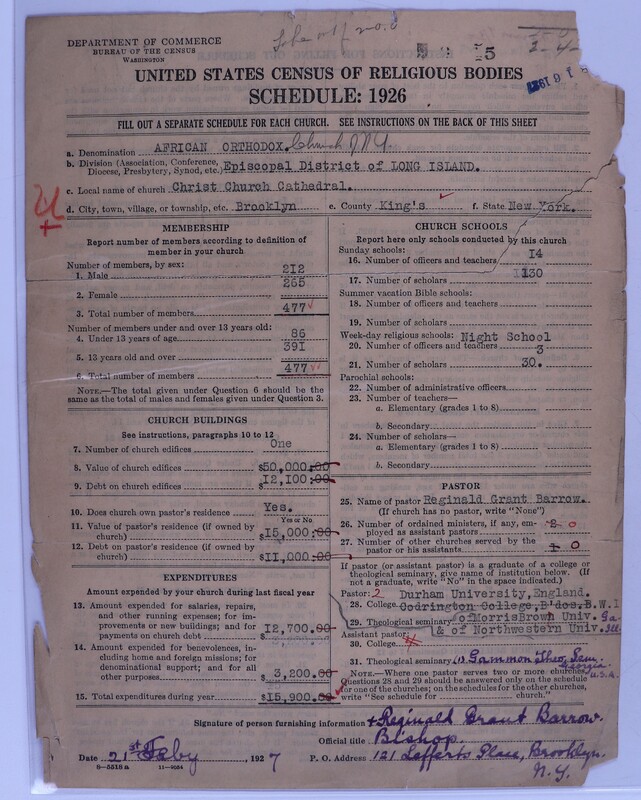 DEPARTMENT OF COMMERCE
BUREAU OF THE CENSUS
WASHINGTON
UNITED STATES CENSUS OF RELIGIOUS BODIES
SCHEDULE: 1926
FILL OUT A SEPARATE SCHEDULE FOR EACH CHURCH. SEE INSTRUCTIONS ON THE BACK OF THIS SHEET
a. Denomination AFRICAN ORTHODOX. Church
b. Division (Association, Conference, Diocese, Presbytery, Synod, etc.) Episcopal District of LONG ISLAND.
c. Local name of church Christ Church Cathedral.
d. City, town, village, or township, etc. Brooklyn e. County King's f. State New York.
MEMBERSHIP
Report number of members according to definition of member in your church.
Number of members, by sex:
1. Male 212
2. Female 265
3. Total number of members 477
Number of members under and over 13 years old:
4. Under 13 years of age 86
5. 13 years old and over 391
6. Total number of members 477
NOTE.—The total given under Question 6 should be the same as the total of males and females given under Question 3.
CHURCH BUILDINGS
See instructions, paragraphs 10 to 12
7. Number of church edifices One
8. Value of church edifices $50,000.00
9. Debt on church edifices $12,100.00
10. Does church own pastor's residence Yes.
Yes or No
11. Value of pastor's residence (if owned by church) $15,000.00
12. Debt on pastor's residence (if owned by church) $11,000.00
EXPENDITURES
Amount expended by your church during last fiscal year
13. Amount expended for salaries, repairs, and other running expenses; for improvements or new buildings; and for payments on church debt 12,700.00
14. Amount expended for benevolences, including home and foreign missions; for denominational support; and for all other purposes 3,200.00
15. Total expenditures during year $15,900.00
CHURCH SCHOOLS
Report here only schools conducted by this church
Sunday schools:
16. Number of officers and teachers 14
17. Number of scholars 130
Summer vacation Bible schools:
18. Number of officers and teachers
19. Number of scholars
Week-day religious schools: Night School
20. Number of officers and teachers 3
21. Number of scholars 30.
Parochial schools:
22. Number of administrative officers
23. Number of teachers—
a. Elementary (grades 1 to 8)
b. Secondary
24. Number of scholars—
a. Elementary (grades 1 to 8)
b. Secondary
PASTOR
25. Name of pastor Reginald Grant Barrow.
(If church has no pastor, write "None")
26. Number of ordained ministers, if any, employed as assistant pastors 2 0
27. Number of other churches served by the pastor or his assistants 1 0
If pastor (or assistant pastor) is a graduate of a college or theological seminary, give name of institution below. (If not a graduate, write "No" in the space indicated.)
Pastor: 2 Durham University, England.
28. College Codrington College, B'dos. B.W.I
29. Theological seminary of Morris Brown Univ. Ga.
& of Northwestern Univ. Ill.
Assistant pastor:
30. College
31. Theological seminary Gammon Theo. Sem. Georgia. U.S.A.
NOTE.—Where one pastor serves two or more churches, Questions 28 and 29 should be answered only on the schedule for one of the churches; on the schedules for the other churches, write "See schedule for church."
Signature of person furnishing information + Reginald Grant Barrow.
Official title Bishop.
Date 21st Feby, 1927 P. O. Address 121 Lefferts Place, Brooklyn. N.Y.
8—5518 a 11—9054